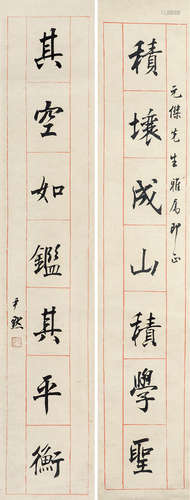 元傑先生雅属即正
積壤成山積學聖
其空如鑑其平衡
尹默